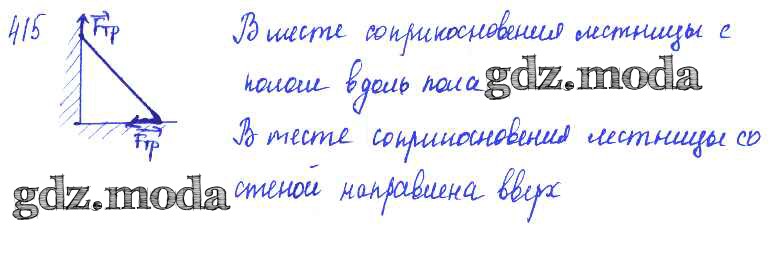 415
Fтр
В месте соприкосновения лестницы с
полом вдоль пола
gdz.moda
Fтр
В месте соприкосновения лестницы со
стеной направлена вверх
gdz.moda